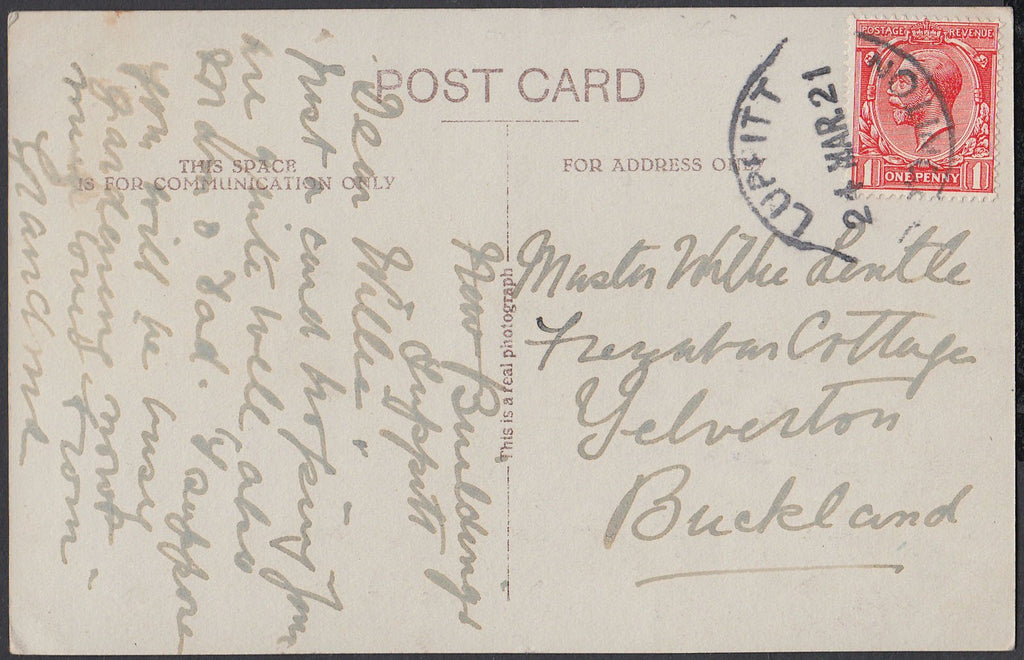 POST CARD
THIS SPACE
IS FOR COMMUNICATION ONLY
FOR ADDRESS ONLY
This is a real photograph
POSTAGE REVENUE
1 ONE PENNY 1
LUPPITT
24 MAR. 21
HONITON
New Buildings
Luppitt
Dear Willie.
Just a card hoping you
are quite well, also
M & Dad. I suppose
you will be busy
gardening now
much love from
Grandma
Master Willie Lentle
Cottage
Yelverton
Buckland